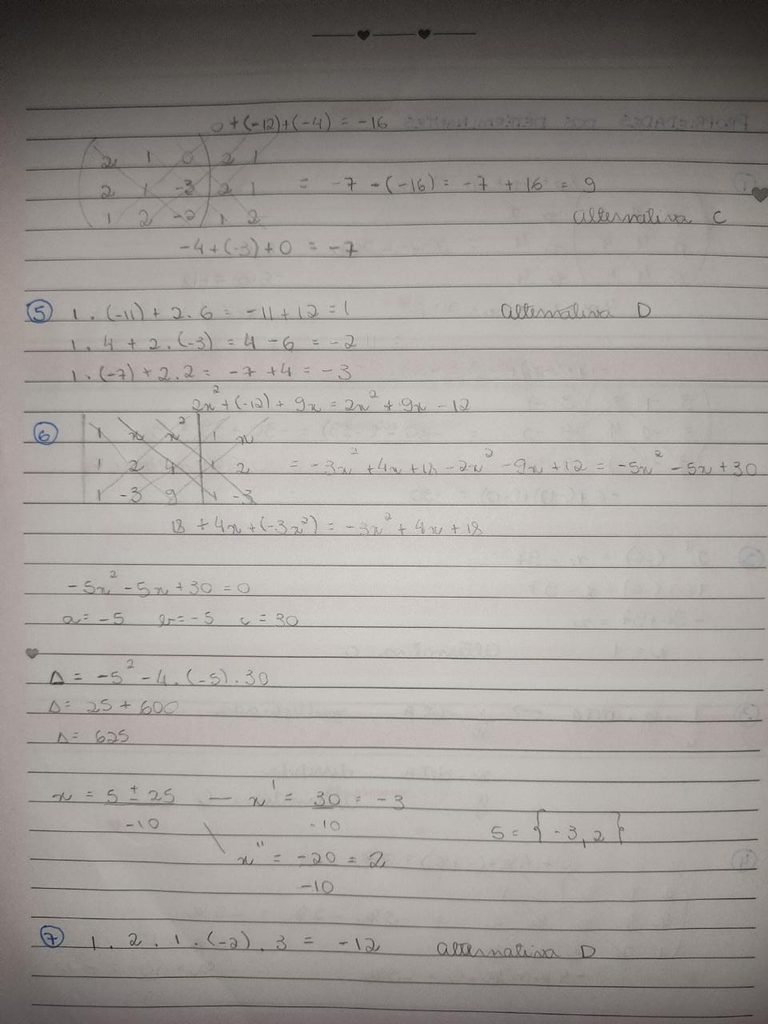 0 + (-12) + (-4) = -16
2 1 0 2 1
2 1 -3 2 1 = -7 - (-16) = -7 + 16 = 9
1 2 -2 1 2 alternativa C
-4 + (-3) + 0 = -7
5 1 . (-11) + 2 . 6 = -11 + 12 = 1 alternativa D
1 . 4 + 2 . (-3) = 4 - 6 = -2
1 . (-7) + 2 . 2 = -7 + 4 = -3
2x² + (-12) + 9x = 2x² + 9x - 12
6 1 x x² 1 x
1 2 4 1 2 = -3x² + 4x + 18 - 2x² - 9x + 12 = -5x² - 5x + 30
1 -3 9 1 -3
18 + 4x + (-3x²) = -3x² + 4x + 18
-5x² - 5x + 30 = 0
a = -5 b = -5 c = 30
Δ = -5² - 4 . (-5) . 30
Δ = 25 + 600
Δ = 625
x = 5 ± 25 — x' = 30 = -3
-10 -10 S = {-3, 2}
x'' = -20 = 2
-10
7 1 . 2 . 1 . (-2) . 3 = -12 alternativa D